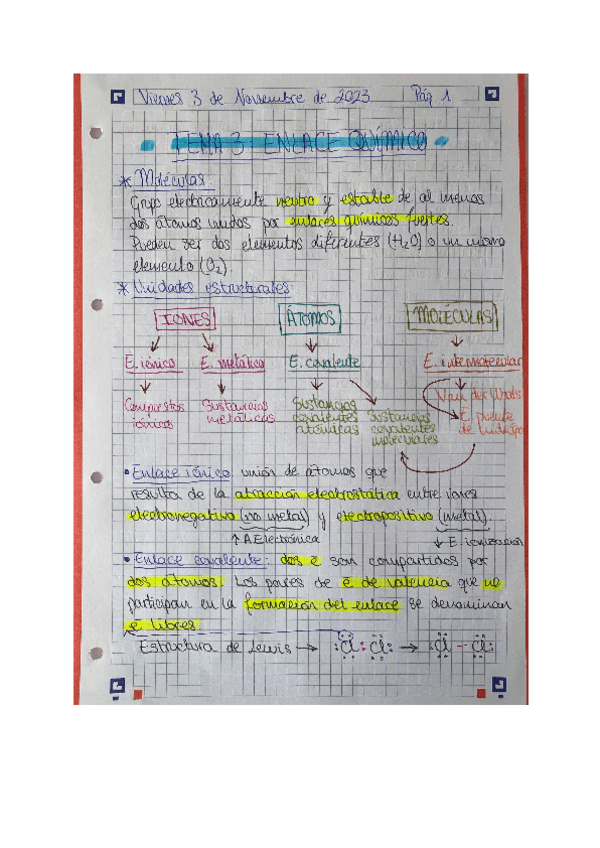 Viernes 3 de Noviembre de 2023 Pág 1
TEMA 3: ENLACE QUÍMICO
* Moléculas:
Grupo eléctricamente neutro y estable de al menos
dos átomos unidos por enlaces químicos fuertes.
Pueden ser dos elementos diferentes (H₂O) o un mismo
elemento (O₂).
* Unidades estructurales:
IONES ÁTOMOS MOLÉCULAS
E. iónico E. metálico E. covalente E. intermolecular
Van der Waals
Compuestos iónicos
Sustancias metálicas
Sustancias covalentes atómicas
Sustancias covalentes moleculares
E. puente de hidrógeno
• Enlace iónico: unión de átomos que
resulta de la atracción electrostática entre iones
electronegativo (no metal) y electropositivo (metal).
↑ A Electrónica ↓ E. ionización
• Enlace covalente: dos e⁻ son compartidos por
dos átomos. Los pares de e⁻ de valencia que no
participan en la formación del enlace se denominan
e⁻ libres.
Estructura de Lewis → :Cl : Cl: → :Cl – Cl: